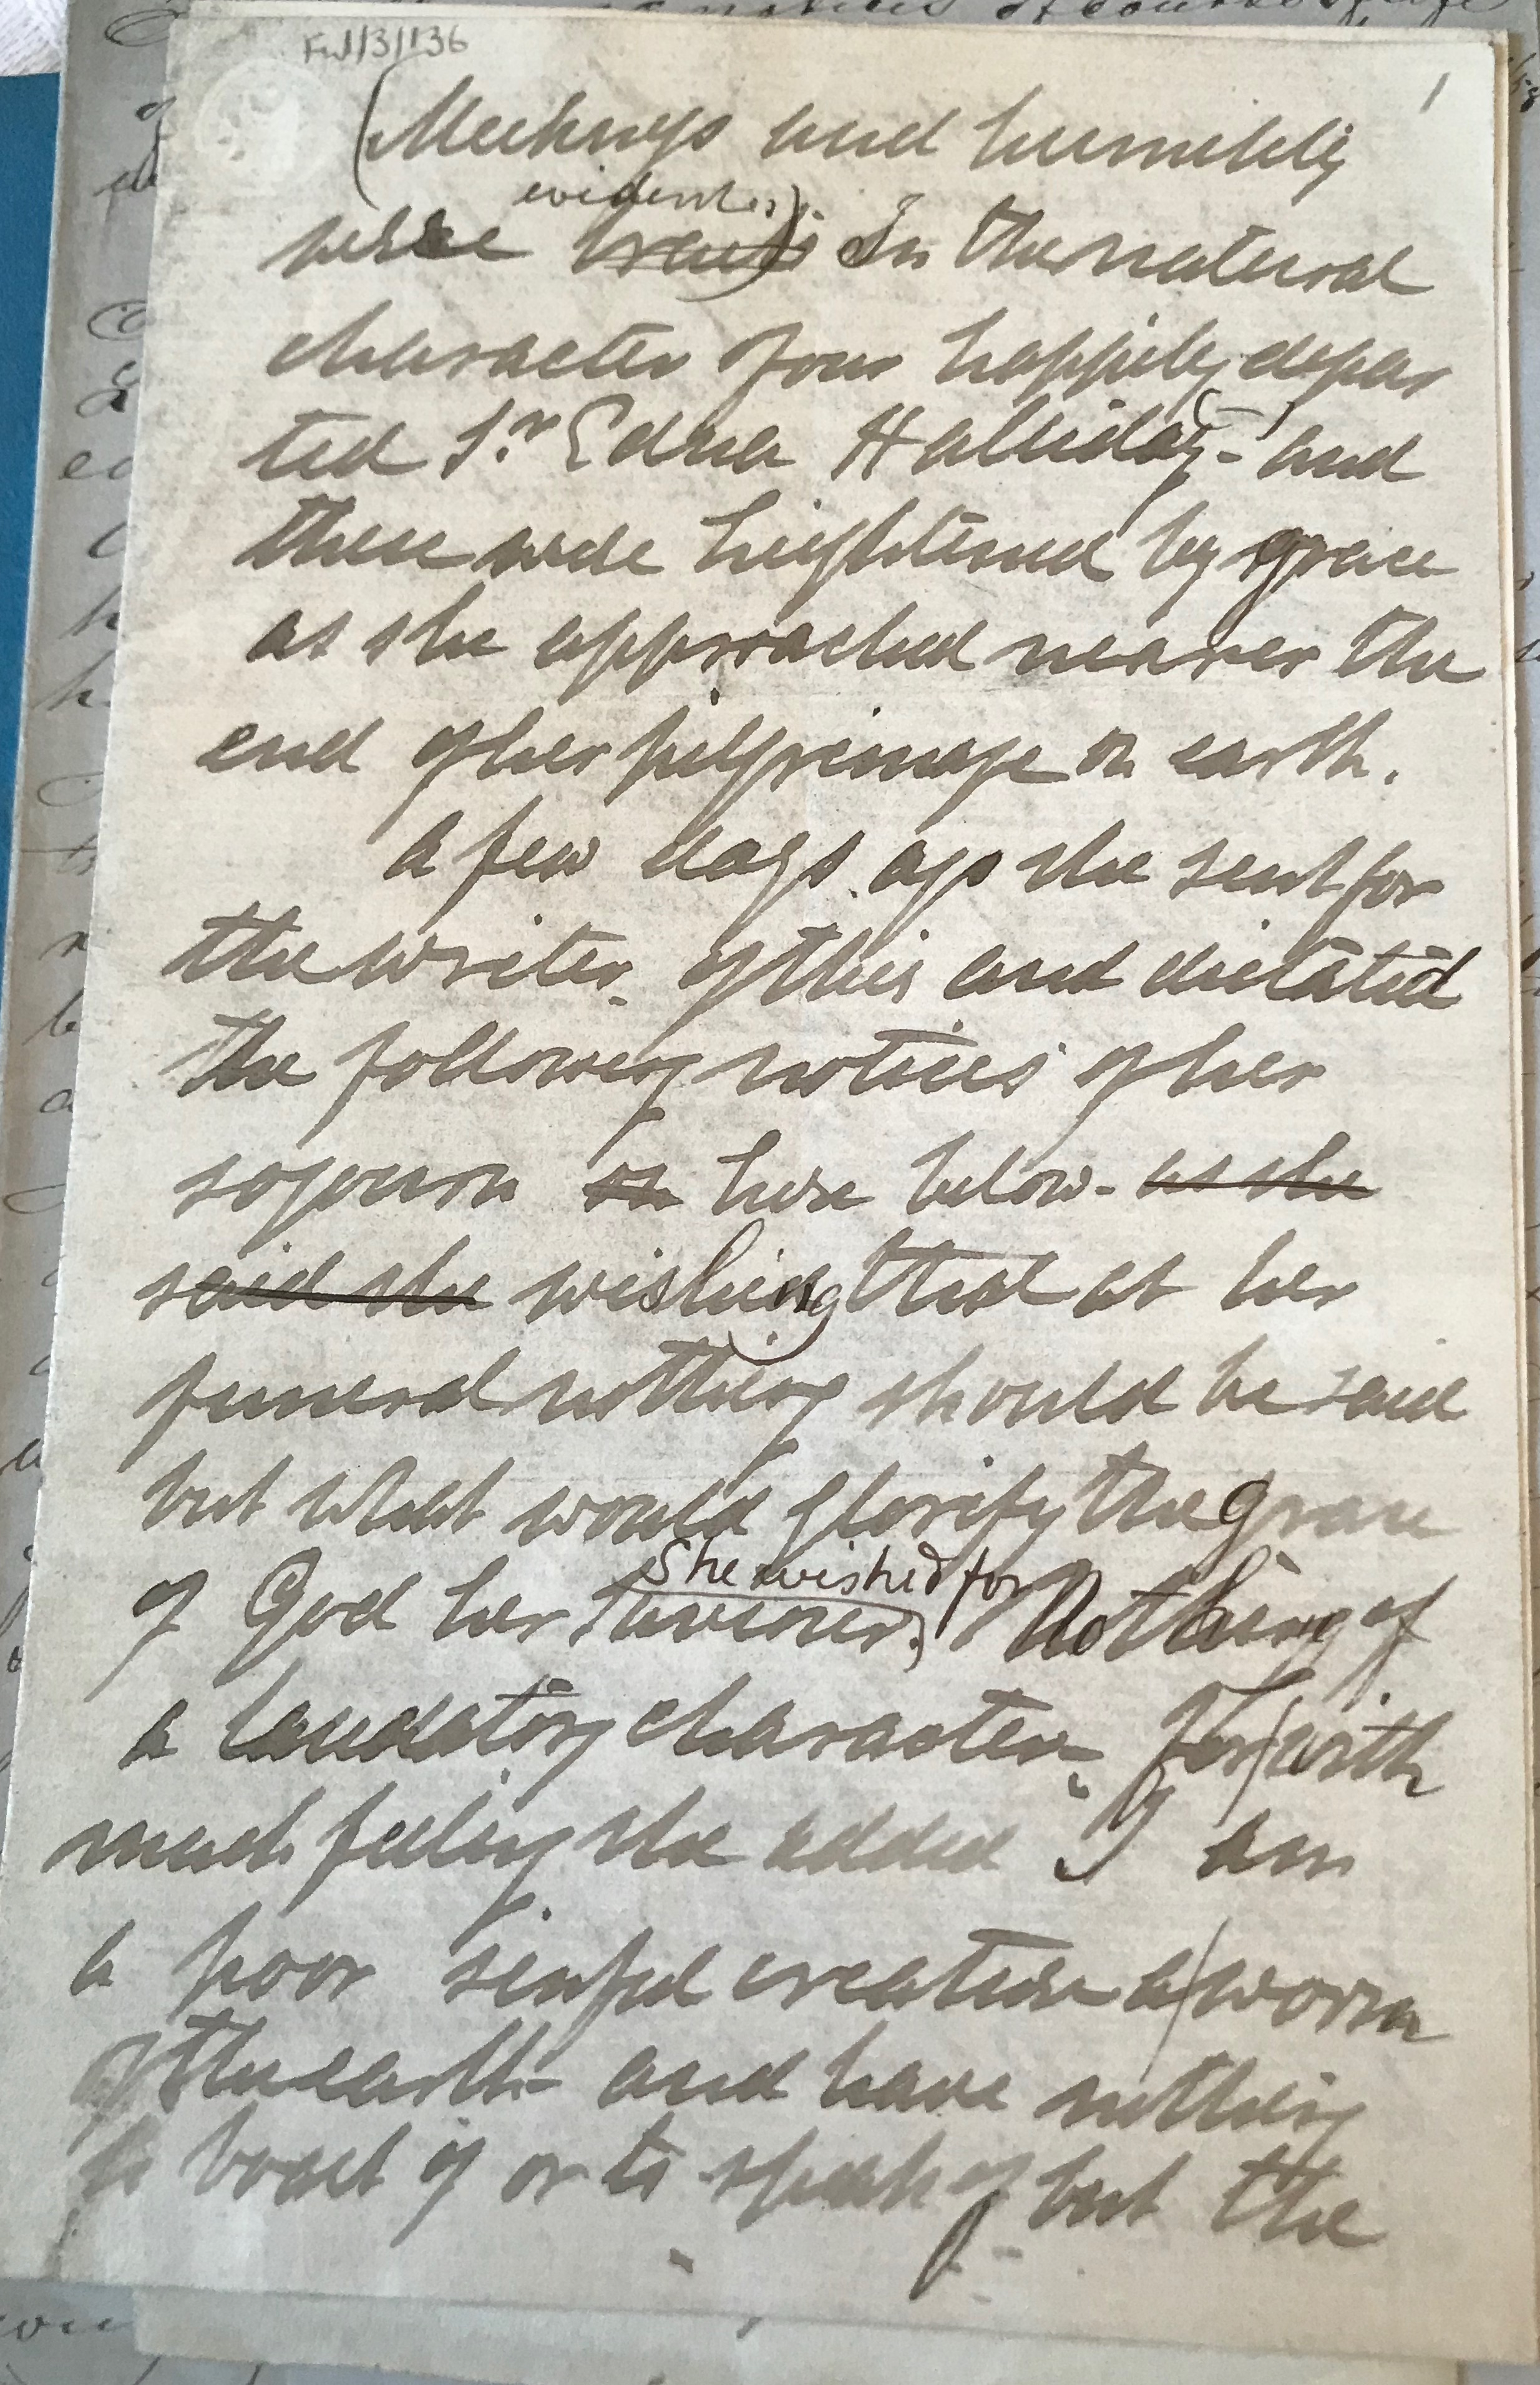 Ful/3/136
1
(Meekness and humility
evident.)
were traits In the natural
character of our happily depar
ted Sr. Edna Halliday - and
these were heightened by grace
as she approached nearer the
end of her pilgrimage on earth.
A few days ago she sent for
the writer of this and dictated
the following notices of her
sojourn on here below - as she
said she wishing that at her
funeral nothing should be said
but what would glorify the grace
She wished for
of God her Saviour. Nothing of
a laudatory character. For with
much feeling she added I am
a poor sinful creature a worm
of the earth - and have nothing
to boast of or to speak of but the